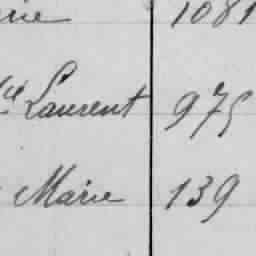 1081
Laurent 975
Marie 139